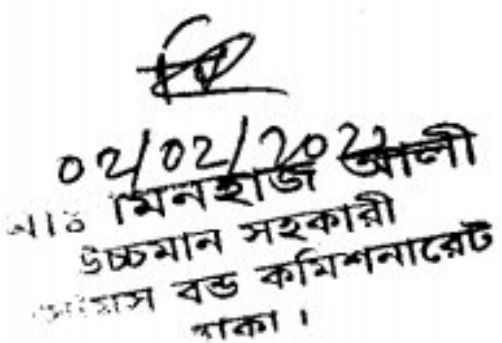 02/02/2022
মিনহাজ আলী
উচ্চমান সহকারী
বন্ড কমিশনারেট
ঢাকা।